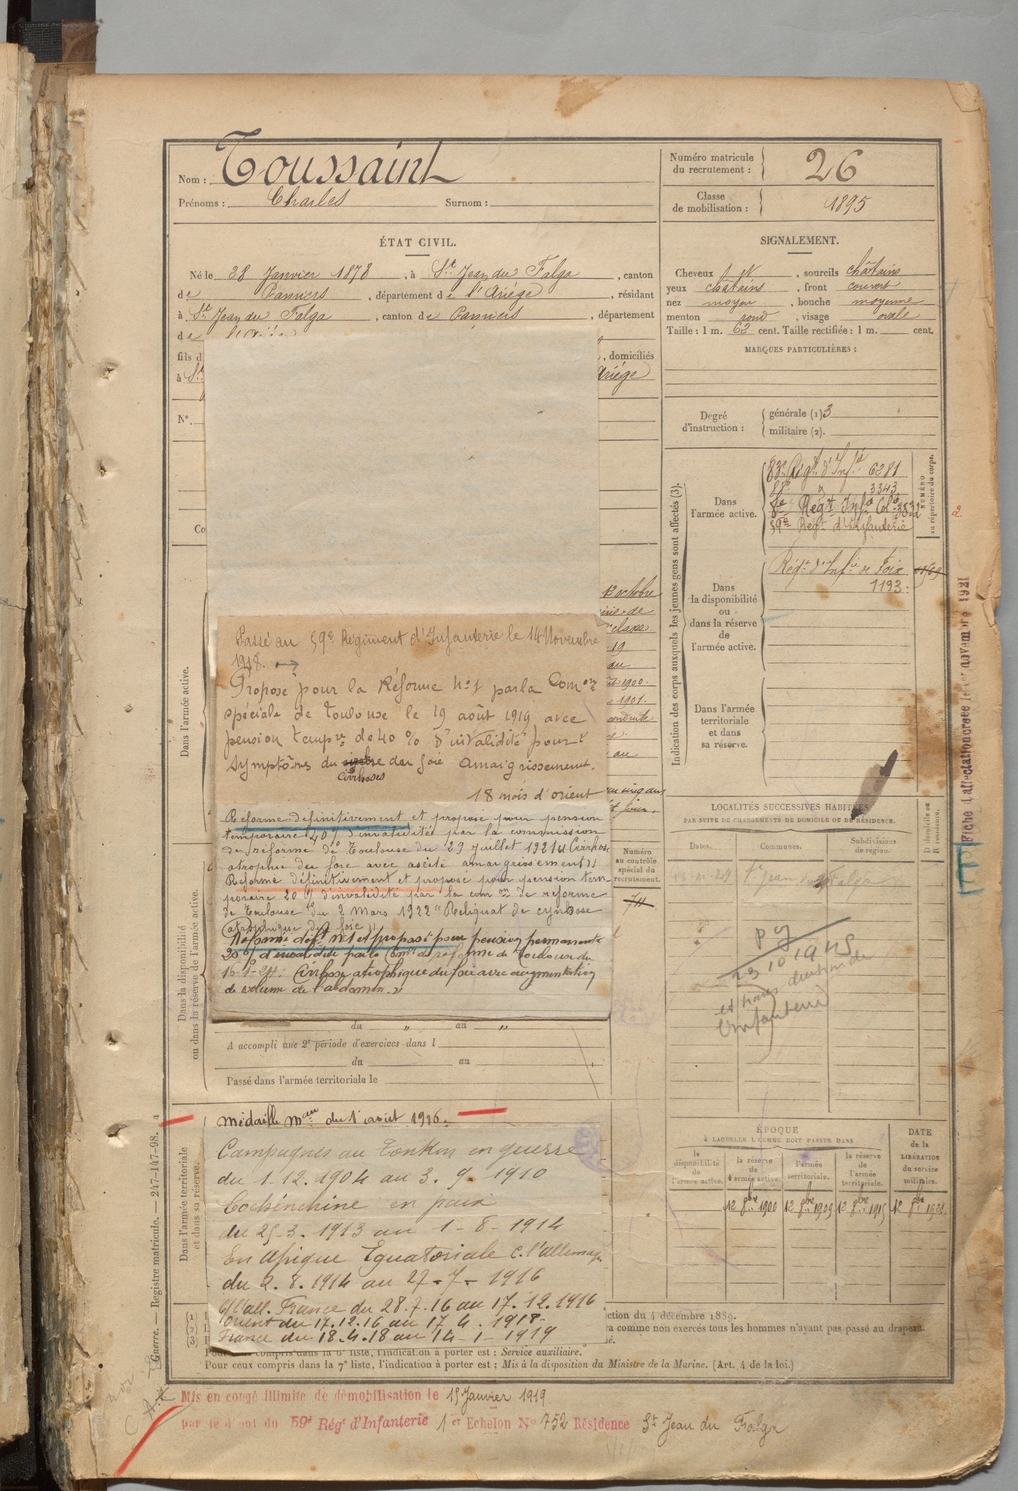 Nom : Toussaint
Prénoms : Charles Surnom :
Numéro matricule
du recrutement : 26
Classe
de mobilisation : 1895
ÉTAT CIVIL.
Né le 28 Janvier 1878, à St Jean du Falga, canton
de Pamiers, département de l'Ariège, résidant
à St Jean du Falga, canton de Pamiers, département
de
fils d
, domiciliés
à St
Ariège
N°.
Co
SIGNALEMENT.
Cheveux et, sourcils châtains
yeux châtains, front couvert
nez moyen, bouche moyenne
menton rond, visage ovale
Taille : 1 m. 62 cent. Taille rectifiée : 1 m. cent.
MARQUES PARTICULIÈRES :
Degré
d'instruction :
générale (1) 3
militaire (2).
Indication des corps auxquels les jeunes gens sont affectés (3).
Dans
l'armée active.
83e Régt d'Infie 6281
3343
8e Régt Infie Cole 3532
59e Régt d'Infanterie
NUMÉRO
au répertoire du corps.
Dans
la disponibilité
ou
dans la réserve
de
l'armée active.
Régt d'Infie de Foix
1193
Dans l'armée
territoriale
et dans
sa réserve.
Fiche d'affectation novembre 1921
Dans l'armée active.
octobre
de
classe
19
au
1900.
1901.
au
Passé au 59e Régiment d'Infanterie le 14 Novembre
1918.
Proposé pour la Réforme N°1 par la Comon
spéciale de Toulouse le 19 août 1919 avec
pension tempre de 40 % d'invalidité pour
symptômes du cirrhoses du foie amaigrissement.
18 mois d'orient
Réformé définitivement et proposé pour pension
temporaire 40 % d'invalidités par la commission
de réforme de Toulouse du 29 juillet 1921 Cirrhose
atrophie du foie avec ascite amaigrissement
Réformé définitivement et proposé pour pension tem
poraire 20 % d'invalidité par la com on de réforme
de Toulouse du 2 Mars 1922 "Reliquat de cyrrhose
atrophique du foie"
Réformé déf. N°1 et proposé pour pension permanente
20 % d'invalidité par la Comon de réforme de Toulouse du
16-1-24. Cirrhose atrophique du foie avec augmentation
de volume de l'abdomen."
Numéro
au contrôle
spécial du
recrutement.
74
LOCALITÉS SUCCESSIVES HABITÉES
PAR SUITE DE CHANGEMENTS DE DOMICILE OU DE RÉSIDENCE.
Dates. Communes. Subdivisions
de région.
St Jean du Falga
23 10 1945
Infanterie
Dans la disponibilité
ou dans la réserve de l'armée active.
du " au "
A accompli une 2e période d'exercices dans l
du au
Passé dans l'armée territoriale le
Dans l'armée territoriale
et dans sa réserve.
Médaille Mre du 1 août 1916.
Campagnes au Tonkin en guerre
du 1.12.1904 au 3.9.1910
Cochinchine en paix
du 25-3.1913 au 1-8-1914
En Afrique Équatoriale c. l'allemag
du 2.8.1914 au 27-7-1916
C/ l'all. France du 28.7.16 au 17.12.1916
Orient du 17.12.16 au 17.4.1918
France du 18.4.18 au 14-1-1919
ÉPOQUE
À LAQUELLE L'HOMME DOIT PASSER DANS
la
disponibilité
de
l'armée active.
la réserve
de
l'armée active.
l'armée
territoriale.
la réserve
de
l'armée
territoriale.
DATE
de la
LIBÉRATION
du service
militaire.
1900
1915
(1)
(2)
(3)
ction du 4 décembre 1889.
ra comme non exercés tous les hommes n'ayant pas passé au drapeau.
Pour ceux compris dans la 6e liste, l'indication à porter est : Service auxiliaire.
Pour ceux compris dans la 7e liste, l'indication à porter est : Mis à la disposition du Ministre de la Marine. (Art. 4 de la loi.)
Guerre. — Registre matricule. — 247-147-98.
Mis en congé illimité de démobilisation le 15 Janvier 1919
par le dépôt du 59e Régt d'Infanterie 1er Echelon N° 752 Résidence St Jean du Falga